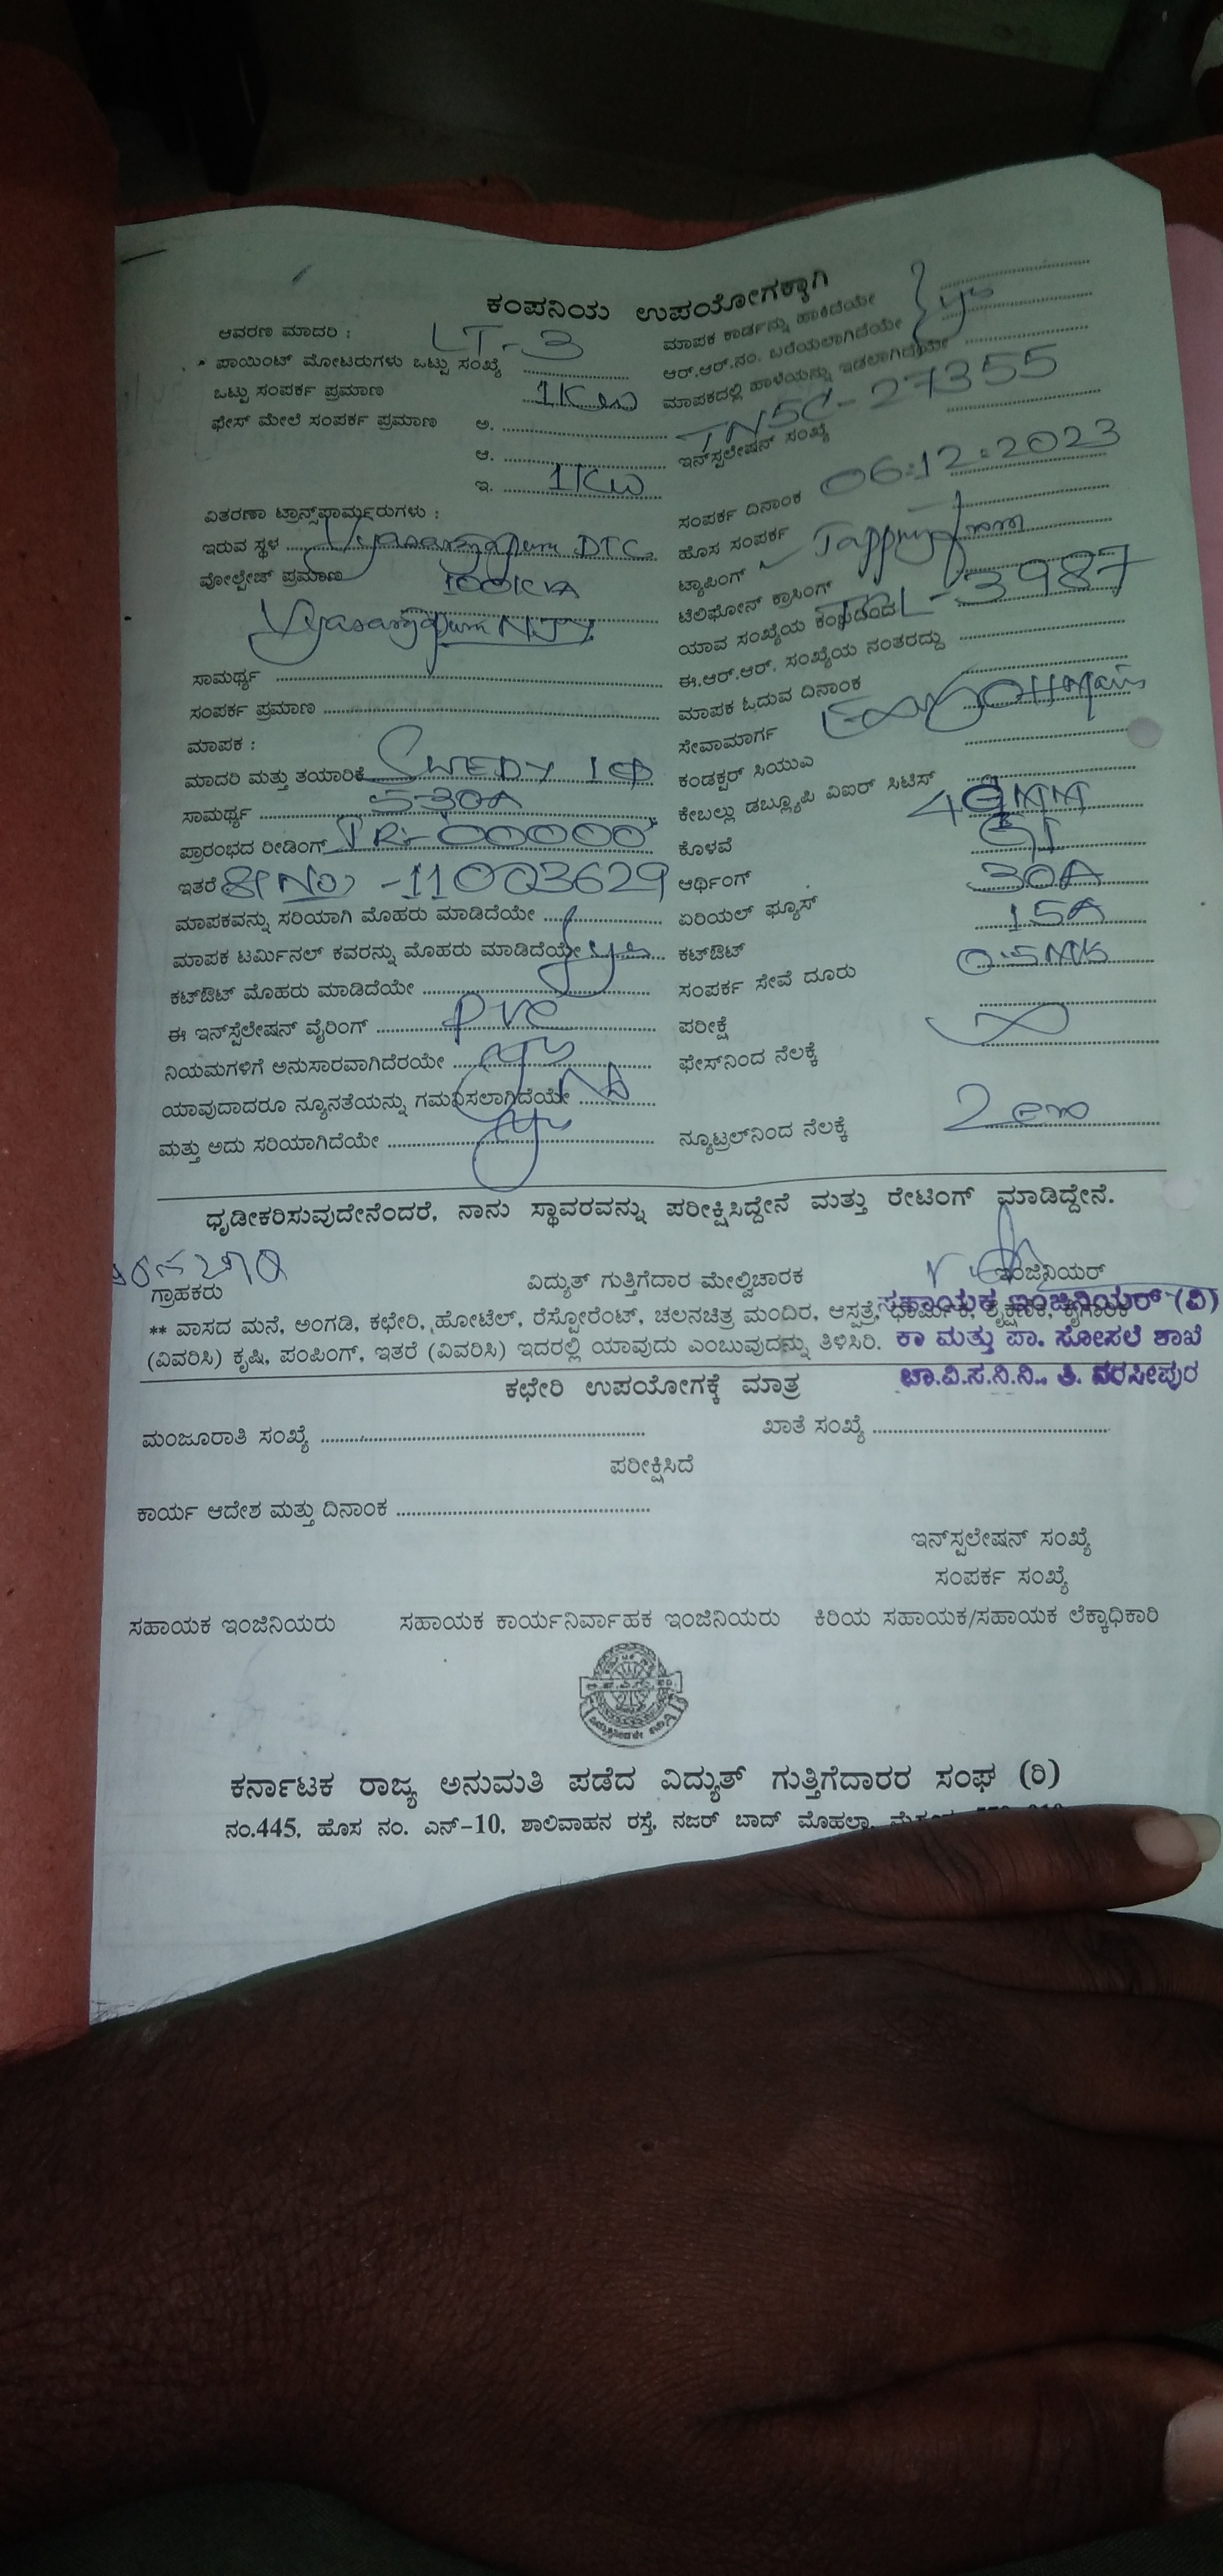 ಕಂಪನಿಯ ಉಪಯೋಗಕ್ಕಾಗಿ
ಆವರಣ ಮಾದರಿ : LT-3
ಪಾಯಿಂಟ್ ಮೋಟರುಗಳು ಒಟ್ಟು ಸಂಖ್ಯೆ
ಒಟ್ಟು ಸಂಪರ್ಕ ಪ್ರಮಾಣ 1KW
ಫೇಸ್ ಮೇಲೆ ಸಂಪರ್ಕ ಪ್ರಮಾಣ ಅ.
ಆ.
ಇ. 1KW
ವಿತರಣಾ ಟ್ರಾನ್ಸ್‌ಫಾರ್ಮರುಗಳು :
ಇರುವ ಸ್ಥಳ DTC
ವೋಲ್ಟೇಜ್ ಪ್ರಮಾಣ 100KVA
NJY
ಸಾಮರ್ಥ್ಯ
ಸಂಪರ್ಕ ಪ್ರಮಾಣ
ಮಾಪಕ :
ಮಾದರಿ ಮತ್ತು ತಯಾರಿಕೆ
ಸಾಮರ್ಥ್ಯ 5-30A
ಪ್ರಾರಂಭದ ರೀಡಿಂಗ್ IR:- 00000
ಇತರೆ Sl No, -11003629
ಮಾಪಕವನ್ನು ಸರಿಯಾಗಿ ಮೊಹರು ಮಾಡಿದೆಯೇ
ಮಾಪಕ ಟರ್ಮಿನಲ್ ಕವರನ್ನು ಮೊಹರು ಮಾಡಿದೆಯೇ yes
ಕಟ್‌ಔಟ್ ಮೊಹರು ಮಾಡಿದೆಯೇ
ಈ ಇನ್‌ಸ್ಟಲೇಷನ್ ವೈರಿಂಗ್ PVC
ನಿಯಮಗಳಿಗೆ ಅನುಸಾರವಾಗಿದೆರಯೇ
ಯಾವುದಾದರೂ ನ್ಯೂನತೆಯನ್ನು ಗಮನಿಸಲಾಗಿದೆಯೇ No
ಮತ್ತು ಅದು ಸರಿಯಾಗಿದೆಯೇ
ಮಾಪಕ ಕಾರ್ಡನ್ನು ಹಾಕಿದೆಯೇ
ಆರ್.ಆರ್.ನಂ. ಬರೆಯಲಾಗಿದೆಯೇ yes
ಮಾಪಕದಲ್ಲಿ ಹಾಳೆಯನ್ನು ಇಡಲಾಗಿದೆಯೇ
ಇನ್‌ಸ್ಪಲೇಷನ್ ಸಂಖ್ಯೆ TNSC-27355
ಸಂಪರ್ಕ ದಿನಾಂಕ 06:12:2023
ಹೊಸ ಸಂಪರ್ಕ
ಟ್ಯಾಪಿಂಗ್ Tapping from
ಟೆಲಿಫೋನ್ ಕ್ರಾಸಿಂಗ್
ಯಾವ ಸಂಖ್ಯೆಯ ಕಂಭದಿಂದ 3987
ಈ.ಆರ್.ಆರ್. ಸಂಖ್ಯೆಯ ನಂತರದ್ದು
ಮಾಪಕ ಓದುವ ದಿನಾಂಕ
ಸೇವಾಮಾರ್ಗ
ಕಂಡಕ್ಟರ್ ಸಿಯುಎ
ಕೇಬಲ್ಲು ಡಬ್ಲ್ಯೂಪಿ ವಿಐಆರ್ ಸಿಟಿಸ್
ಕೊಳವೆ
ಆರ್ಥಿಂಗ್ GI
ಏರಿಯಲ್ ಫ್ಯೂಸ್ 30A
ಕಟ್‌ಔಟ್ 15A
ಸಂಪರ್ಕ ಸೇವೆ ದೂರು
ಪರೀಕ್ಷೆ
ಫೇಸ್‌ನಿಂದ ನೆಲಕ್ಕೆ
ನ್ಯೂಟ್ರಲ್‌ನಿಂದ ನೆಲಕ್ಕೆ
ಧೃಡೀಕರಿಸುವುದೇನೆಂದರೆ, ನಾನು ಸ್ಥಾವರವನ್ನು ಪರೀಕ್ಷಿಸಿದ್ದೇನೆ ಮತ್ತು ರೇಟಿಂಗ್ ಮಾಡಿದ್ದೇನೆ.
ಗ್ರಾಹಕರು ವಿದ್ಯುತ್ ಗುತ್ತಿಗೆದಾರ ಮೇಲ್ವಿಚಾರಕ ಇಂಜಿನಿಯರ್
ಸಹಾಯಕ ಇಂಜಿನಿಯರ್ (ವಿ)
** ವಾಸದ ಮನೆ, ಅಂಗಡಿ, ಕಛೇರಿ, ಹೋಟೆಲ್, ರೆಸ್ಟೋರೆಂಟ್, ಚಲನಚಿತ್ರ ಮಂದಿರ, ಆಸ್ಪತ್ರೆ, ಧಾರ್ಮಿಕ, ಶೈಕ್ಷಣಿಕ, ಕೈಗಾರಿಕೆ
(ವಿವರಿಸಿ) ಕೃಷಿ, ಪಂಪಿಂಗ್, ಇತರೆ (ವಿವರಿಸಿ) ಇದರಲ್ಲಿ ಯಾವುದು ಎಂಬುವುದನ್ನು ತಿಳಿಸಿರಿ.
ಕಾ ಮತ್ತು ಪಾ. ಸೋಸಲೆ ಶಾಖೆ
ಚಾ.ವಿ.ಸ.ನಿ.ನಿ., ತಿ. ನರಸೀಪುರ
ಕಛೇರಿ ಉಪಯೋಗಕ್ಕೆ ಮಾತ್ರ
ಮಂಜೂರಾತಿ ಸಂಖ್ಯೆ ಖಾತೆ ಸಂಖ್ಯೆ
ಪರೀಕ್ಷಿಸಿದೆ
ಕಾರ್ಯ ಆದೇಶ ಮತ್ತು ದಿನಾಂಕ
ಇನ್‌ಸ್ಪಲೇಷನ್ ಸಂಖ್ಯೆ
ಸಂಪರ್ಕ ಸಂಖ್ಯೆ
ಸಹಾಯಕ ಇಂಜಿನಿಯರು ಸಹಾಯಕ ಕಾರ್ಯನಿರ್ವಾಹಕ ಇಂಜಿನಿಯರು ಕಿರಿಯ ಸಹಾಯಕ/ಸಹಾಯಕ ಲೆಕ್ಕಾಧಿಕಾರಿ
ಕರ್ನಾಟಕ ರಾಜ್ಯ ಅನುಮತಿ ಪಡೆದ ವಿದ್ಯುತ್ ಗುತ್ತಿಗೆದಾರರ ಸಂಘ (ರಿ)
ನಂ.445, ಹೊಸ ನಂ. ಎನ್-10, ಶಾಲಿವಾಹನ ರಸ್ತೆ, ನಜರ್ ಬಾದ್ ಮೊಹಲ್ಲಾ,